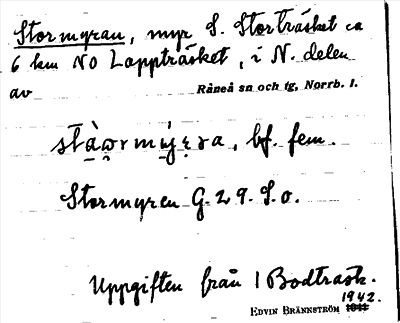 Stormyran, myr S. Storträsket ca
6 km NO Lappträsket, i N. delen
av Råneå sn och tg, Norrb. l.
bf. fem.
Stormyren G. 29. S.o.
Uppgiften från 1 Bodträsk.
1942.
EDVIN BRÄNNSTRÖM